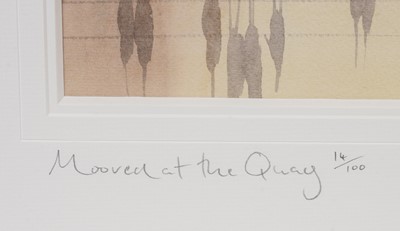 Moored at the Quay 14/100